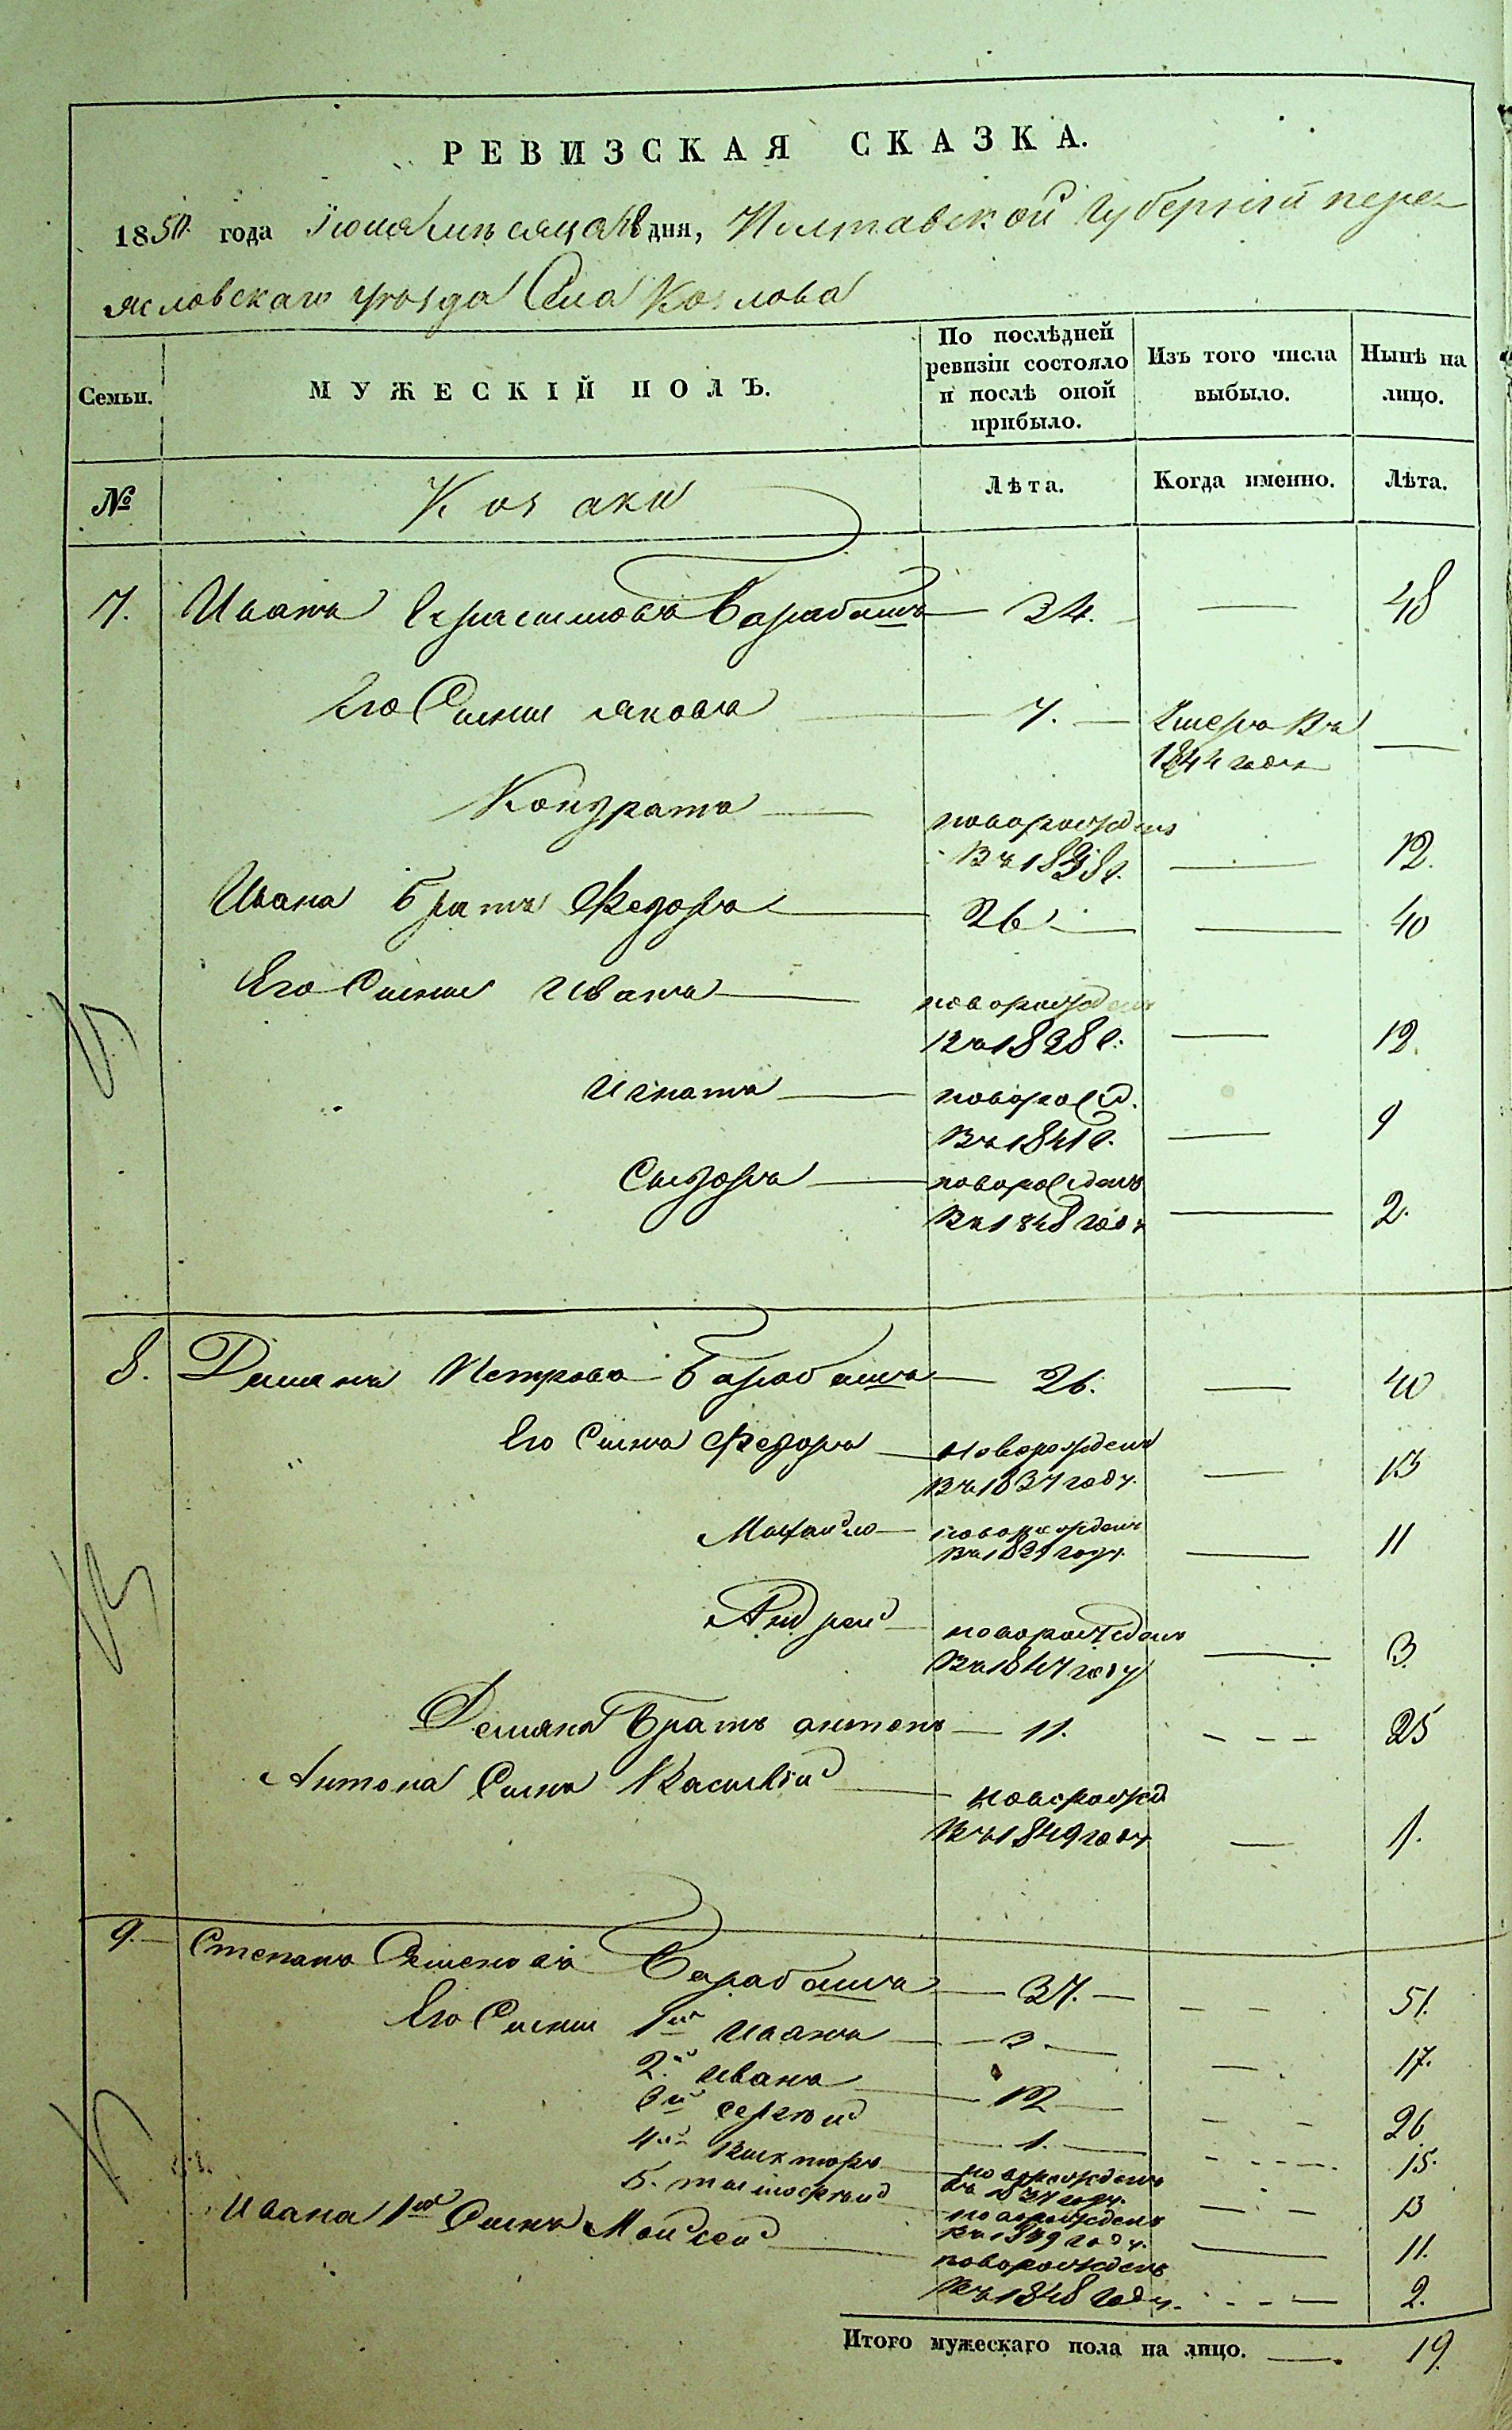 РЕВИЗСКАЯ СКАЗКА.
1850 года Іюня мѣсяца дня, Полтавской Губерніи Пере-
ясловскаго уѣзда Села Козлова
Семьи.
МУЖЕСКІЙ ПОЛЪ.
По послѣдней ревизіи состояло и послѣ оной прибыло.
Изъ того числа выбыло.
Нынѣ на лицо.
№
Козаки
Лѣта.
Когда именно.
Лѣта.
7. Иванъ Герасимовъ Барабашъ 34. 48
Его Сыны Яковъ 7. Умеръ въ
1844 году
Кондратъ новорожденъ
въ 1838 г. 12.
Ивана братъ Федоръ 26 40
Его Сыны Иванъ новорожден
въ 1838 г. 12
Игнатъ новорожд.
въ 1841 г. 9
Сидоръ новорожденъ
въ 1848 году 2.
8. Демянъ Петровъ Барабашъ 26. 40
Его Сынъ Федоръ новорожденъ
въ 1837 году. 13
Михайло новорожденъ
въ 1839 году. 11
Андрей новорожденъ
въ 1847 году 3.
Демяна братъ антонъ 11. 25
Антона Сынъ Василій новорожд
въ 1849 году 1.
9. Степанъ Барабашъ 37. 51.
Его Сыны 1й Иванъ 3. 17.
2й Иванъ 12 26
3й Сергѣй 1. 15.
4й Викторъ новорожденъ
въ 1837 году. 13
5. тимофѣй новорожденъ
въ 1839 году. 11.
Ивана 1го Сынъ Мойсей новорожденъ
въ 1848 году. 2.
Итого мужескаго пола на лицо. 19.